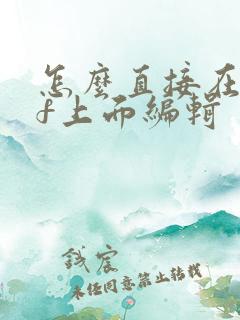 怎麼直接在
f上面編輯
錢宸
未经同意禁止转载